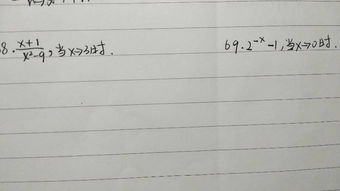 8. (x+1)/(x²-9), 当x→3时.
69. 2^{-x}-1, 当x→0时.